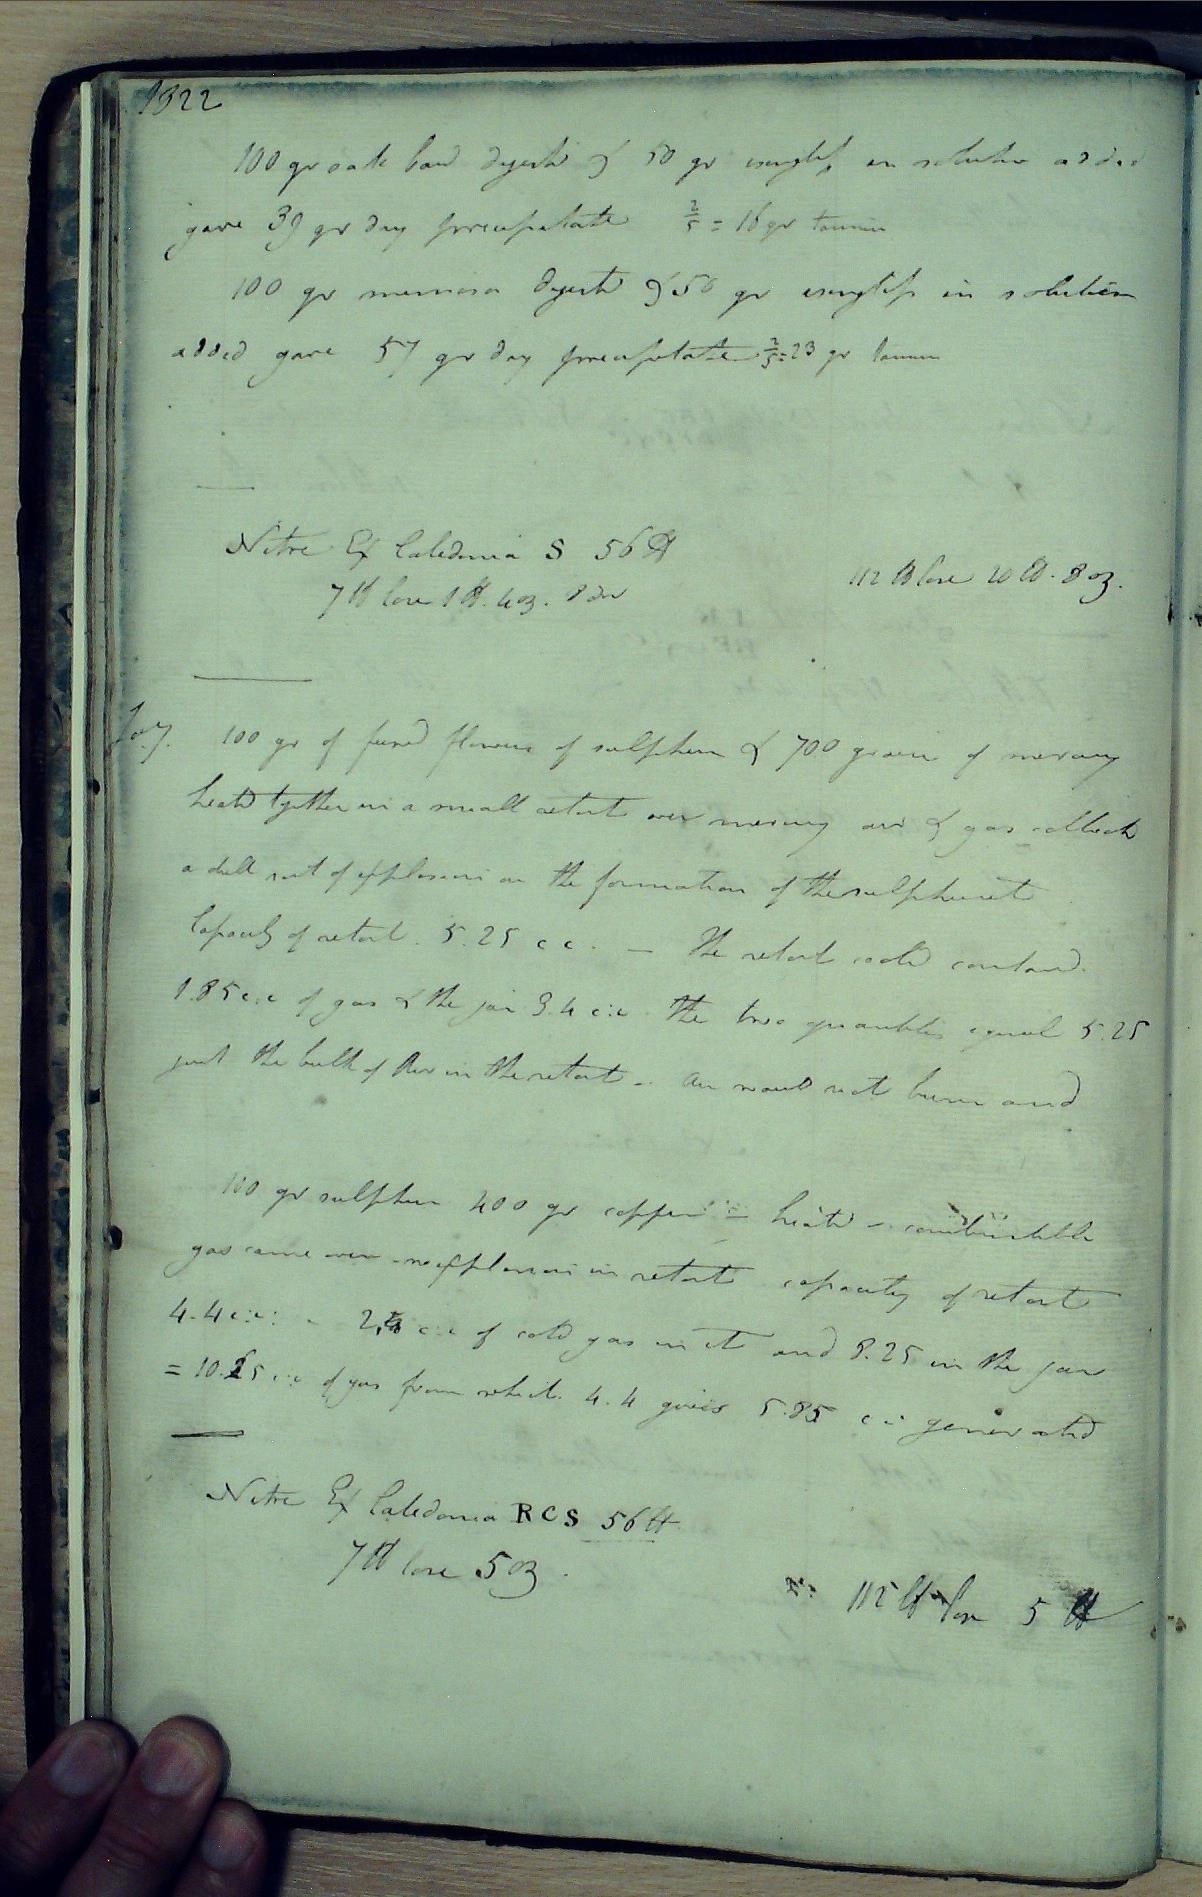 1822
100 gr oak bark digested & 50 gr isinglass in solution added
gave 39 gr dry precipitate 2/5 = 16 gr tannin
100 gr mimosa digested & 50 gr isinglass in solution
added gave 57 gr dry precipitate 2/5 = 23 gr tannin
Nitre Ex Caledonia S 56 lb
7 lb lose 1 lb. 4 oz. 8 dr
112 lb lose 20 lb. 8 oz.
100 gr of fused flowers of sulphur & 700 grains of mercury
heated together in a small retort over mercury air & gas collected
a dull sort of explosion on the formation of the sulphuret
Capacity of retort. 5.25 c c. — The retort cold contained
1.85 c:c of gas & the jar 3.4 c:c. The two quantities equal 5.25
just the bulk of air in the retort - Air would not burn and
100 gr sulphur 400 gr copper - heated - combustible
gas came over - no explosion in retort capacity of retort
4.4 c:c: - c:c of cold gas in it and 8.25 in the jar
= c:c of gas from which 4.4 gives 5.85 c:c generated
Nitre Ex Caledonia RCS 56 lb
7 lb lose 5 oz.
112 lb lose 5 lb